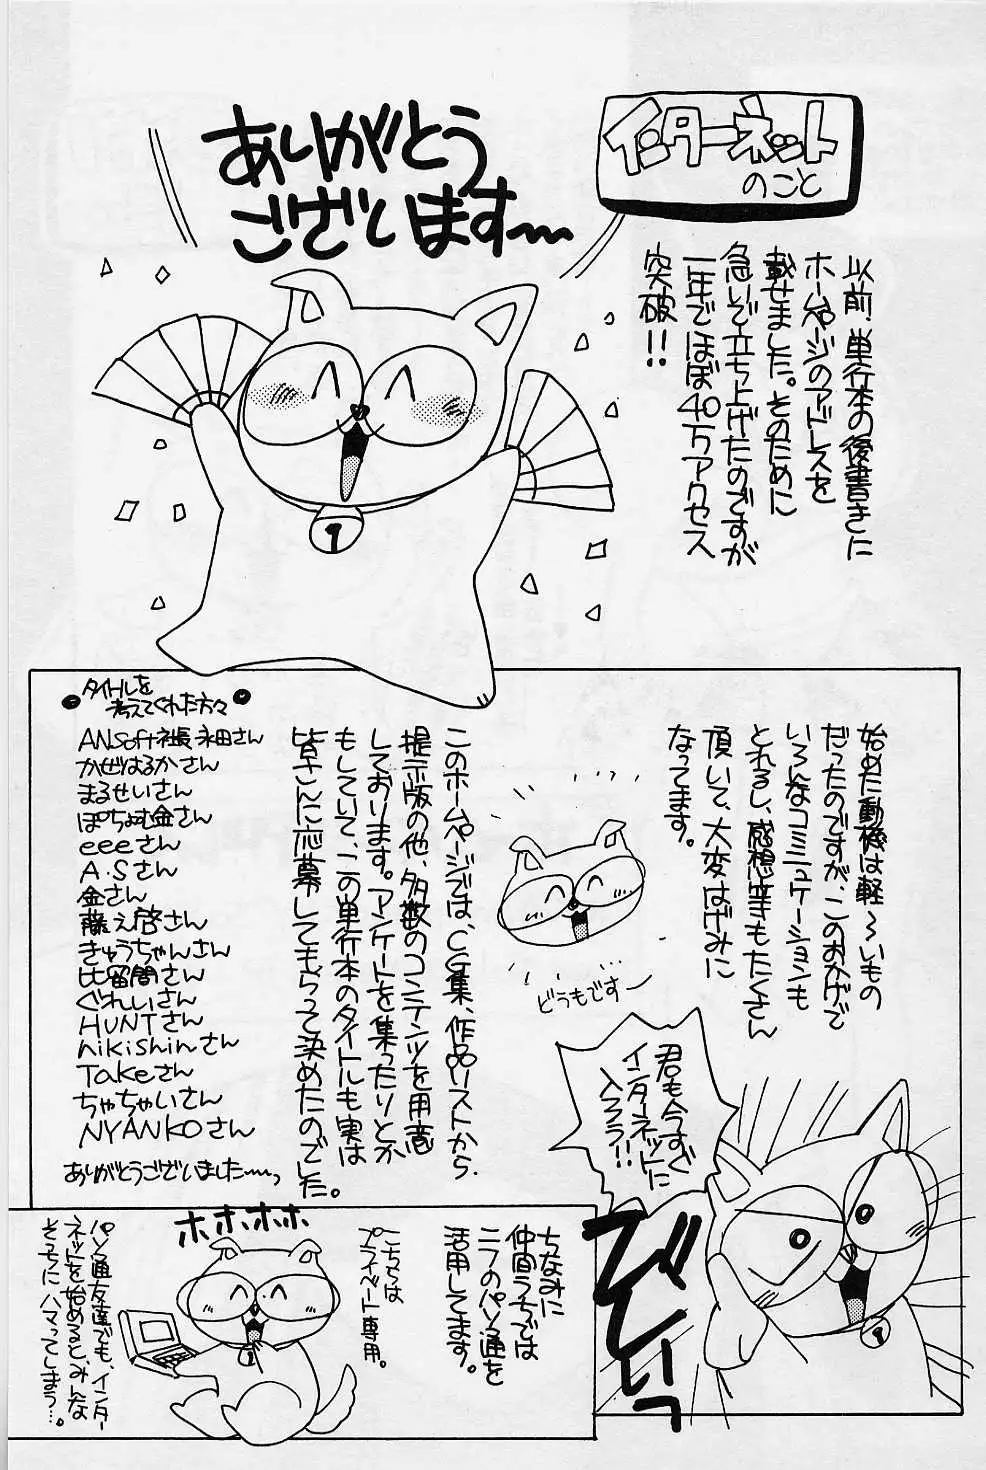 インターネット
のこと
ありがとう
ございます〜
以前、単行本の後書きに
ホームページのアドレスを
載せました。そのために
急いで立ち上げたのですが
一年でほぼ40万アクセス
突破!!
始めた動機は軽〜いもの
だったのですが、このおかげで
いろんなコミニュケーションも
とれるし、感想等もたくさん
頂いて、大変はげみに
なってます。
どうもです〜
このホームページでは、CG集、作品リストから、
提示版の他、多数のコンテンツを用意
しております。アンケートを集ったりとか
もしていて、この単行本のタイトルも実は
皆さんに応募してもらって決めたのでした。
タイトルを
考えてくれた方々
ANSoft社長永田さん
かぜはるかさん
まるせいさん
ぽちょむ金さん
eeeさん
A.Sさん
金さん
藤え啓さん
きゅうちゃんさん
比留間さん
ぐれいさん
HUNTさん
hikishinさん
Takeさん
ちゃちゃいさん
NYANKOさん
ありがとうございました〜っ
君も今すぐ
インターネットに
入ろう!!
でいっ
ちなみに
仲間うちでは
ニフのパソ通を
活用してます。
こちらは
プライベート専用。
ホホホホ
パソ通友達でも、インター
ネットを始めると、みんな
そっちにハマってしまう…。